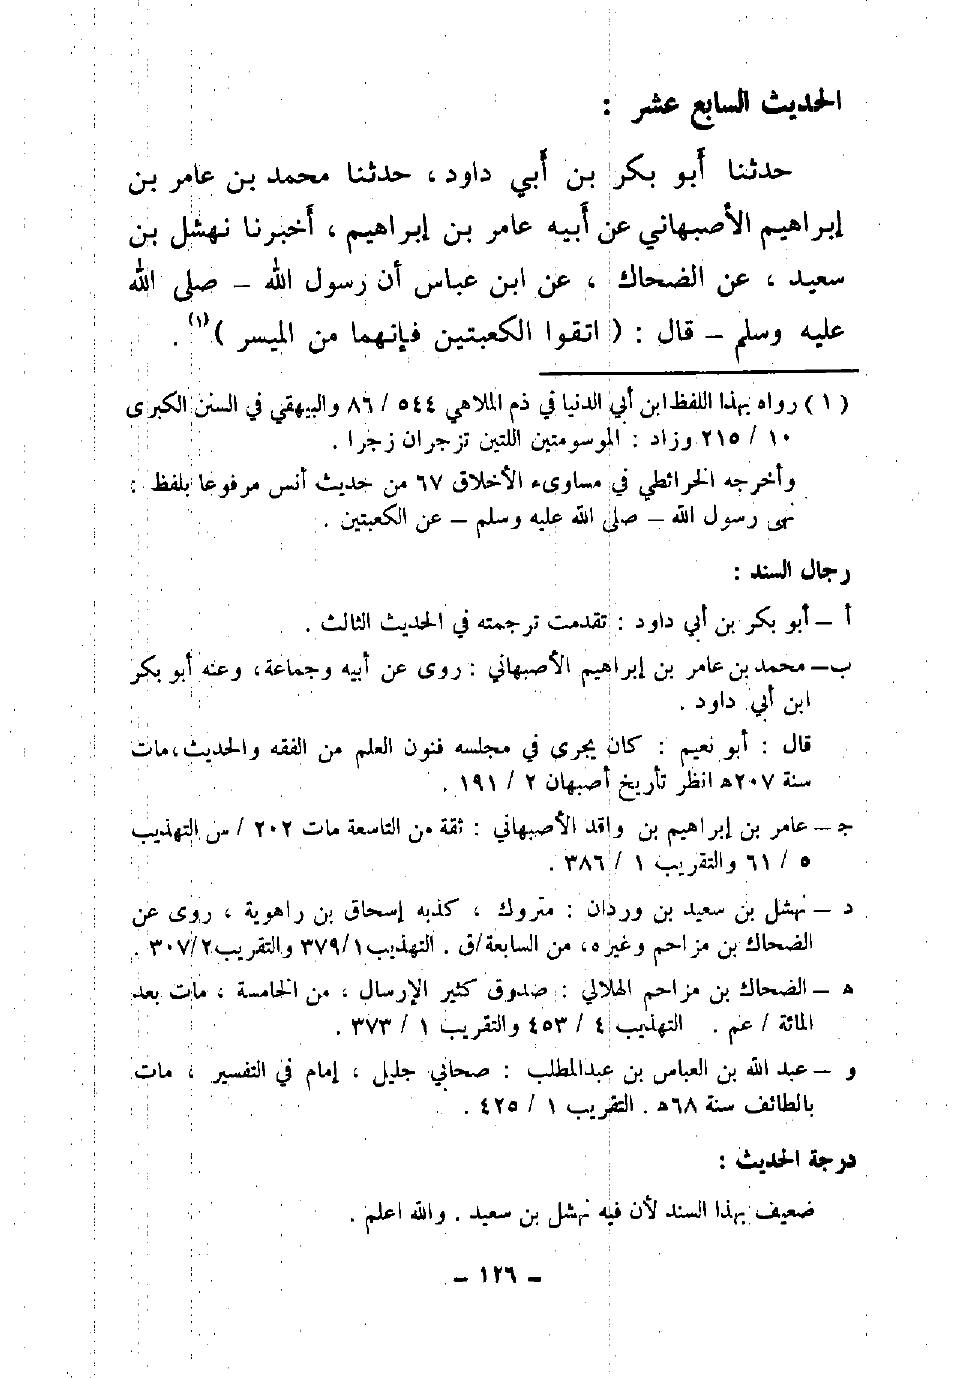 الحديث السابع عشر :
حدثنا أبو بكر بن أبي داود ، حدثنا محمد بن عامر بن
إبراهيم الأصبهاني عن أبيه عامر بن إبراهيم ، أخبرنا نهشل بن
سعيد ، عن الضحاك ، عن ابن عباس أن رسول الله – صلى الله
عليه وسلم – قال : ( اتقوا الكعبتين فإنهما من الميسر )(١) .
( ١ ) رواه بهذا اللفظ ابن أبي الدنيا في ذم الملاهي ٥٤٤ / ٨٦ والبيهقي في السنن الكبرى
١٠ / ٢١٥ وزاد : الموسومتين اللتين تزجران زجرا .
وأخرجه الخرائطي في مساوىء الأخلاق ٦٧ من حديث أنس مرفوعا بلفظ :
نهى رسول الله – صلى الله عليه وسلم – عن الكعبتين .
رجال السند :
أ – أبو بكر بن أبي داود : تقدمت ترجمته في الحديث الثالث .
ب – محمد بن عامر بن إبراهيم الأصبهاني : روى عن أبيه وجماعة، وعنه أبو بكر
ابن أبي داود .
قال : أبو نعيم : كان يجرى في مجلسه فنون العلم من الفقه والحديث،مات
سنة ٢٠٧هـ انظر تأريخ أصبهان ٢ / ١٩١ .
جـ – عامر بن إبراهيم بن واقد الأصبهاني : ثقة من التاسعة مات ٢٠٢ / س التهذيب
٥ / ٦١ والتقريب ١ / ٣٨٦ .
د – نهشل بن سعيد بن وردان : متروك ، كذبه إسحاق بن راهوية ، روى عن
الضحاك بن مزاحم وغيره، من السابعة/ق . التهذيب١/ ٣٧٩ والتقريب٢/ ٣٠٧ .
هـ – الضحاك بن مزاحم الهلالي : صدوق كثير الإرسال ، من الخامسة ، مات بعد
المائة / عم . التهذيب ٤ / ٤٥٣ والتقريب ١ / ٣٧٣ .
و – عبد الله بن العباس بن عبدالمطلب : صحابي جليل ، إمام في التفسير ، مات
بالطائف سنة ٦٨هـ . التقريب ١ / ٤٢٥ .
درجة الحديث :
ضعيف بهذا السند لأن فيه نهشل بن سعيد . والله اعلم .
– ١٢٦ –